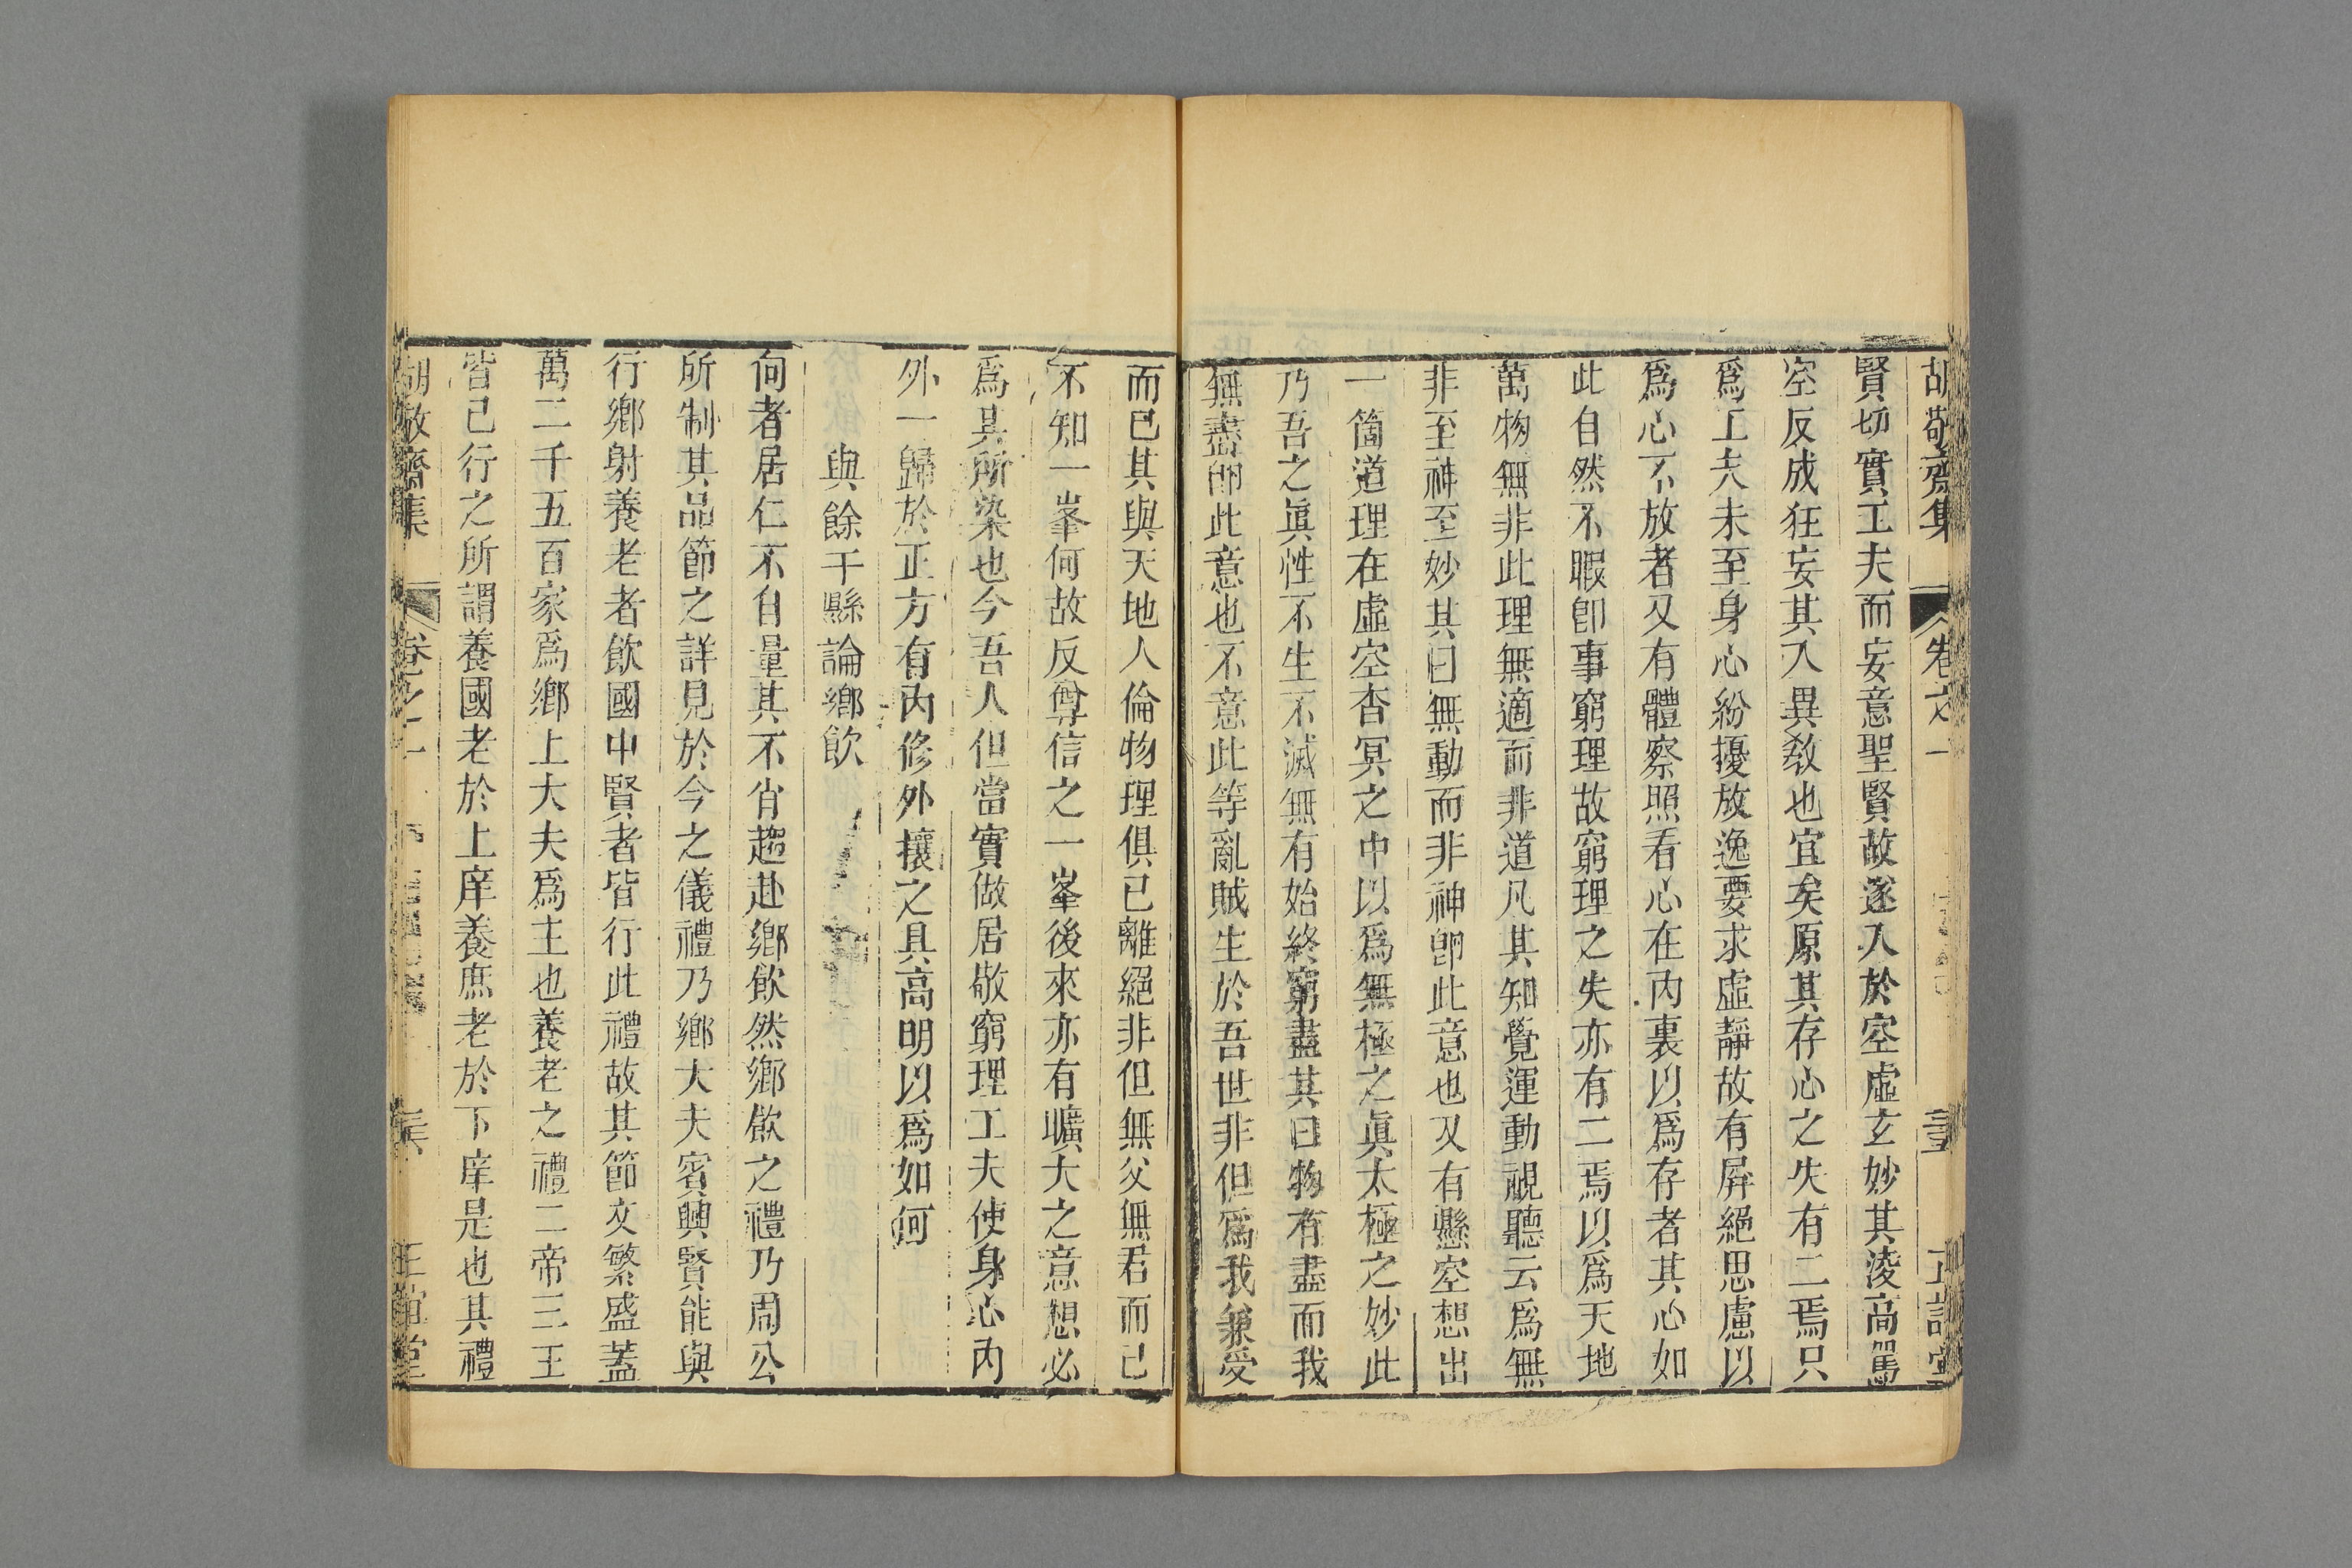 胡敬齋集 卷之一 正誼堂
賢切實工夫而妄意聖賢故遂入於空虛玄妙其淩高駕
空反成狂妄其入異教也宜矣原其存心之失有二焉只
爲工夫未至身心紛擾放逸要求虛靜故有屛絕思慮以
爲心不放者又有體察照看心在內裏以爲存者其心如
此自然不暇卽事窮理故窮理之失亦有二焉以爲天地
萬物無非此理無適而非道凡其知覺運動視聽云爲無
非至神至妙其曰無動而非神卽此意也又有懸空想出
一箇道理在虛空杳冥之中以爲無極之眞太極之妙此
乃吾之眞性不生不滅無有始終窮盡其曰物有盡而我
無盡卽此意也不意此等亂賊生於吾世非但爲我兼愛
而已其與天地人倫物理俱已離絕非但無父無君而已
不知一峯何故反尊信之一峯後來亦有曠大之意想必
爲其所染也今吾人但當實做居敬窮理工夫使身心內
外一歸於正方有內修外攘之具高明以爲如何
與餘干縣論鄉飲
向者居仁不自量其不肖趨赴鄉飲然鄉飲之禮乃周公
所制其品節之詳見於今之儀禮乃鄉大夫賓興賢能與
行鄉射養老者飲國中賢者皆行此禮故其節文繁盛蓋
萬二千五百家爲鄉上大夫爲主也養老之禮二帝三王
皆已行之所謂養國老於上庠養庶老於下庠是也其禮
胡敬齋集 卷之一 正誼堂